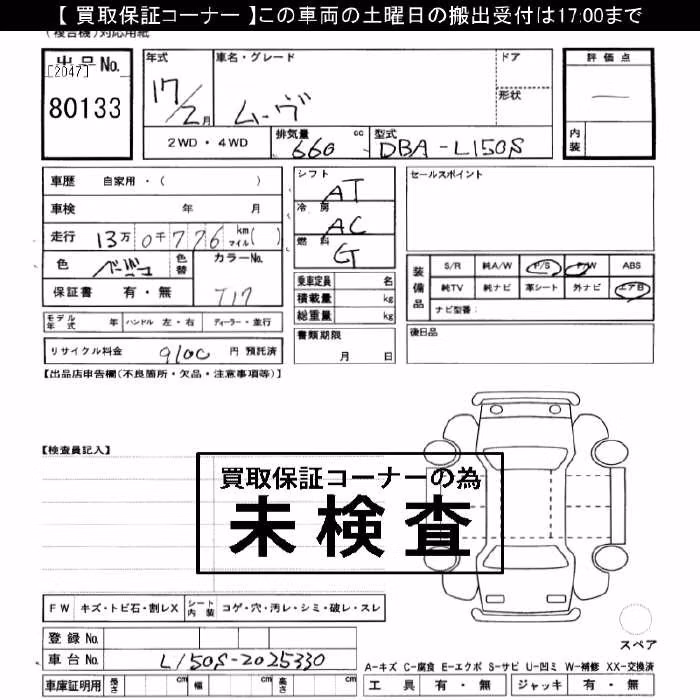 【 買取保証コーナー 】この車両の土曜日の搬出受付は17:00まで
(複合機)対応用紙
出品No.
[2047]
80133
年式
17/2月
車名・グレード
ムーヴ
ドア
形状
評価点
—
内装
2WD・4WD
排気量 660 cc
型式 DBA-L150S
車歴 自家用・( )
車検 年 月
走行 13万0千776 km マイル( )
色 ベージュ 色替
カラーNo. T17
保証書 有・無
シフト AT
冷房 AC
燃料 G
乗車定員 名
積載量 kg
総重量 kg
書類期限
月 日
セールスポイント
装備品
S/R 純A/W P/S P/W ABS
純TV 純ナビ 革シート 外ナビ エアB
ナビ型番:
後日品
モデル年式 年 ハンドル 左・右 ディーラー・並行
リサイクル料金 9100 円 預託済
【出品店申告欄(不良箇所・欠品・注意事項等)】
【検査員記入】
買取保証コーナーの為
未検査
FW キズ・トビ石・割レX シート内装 コゲ・穴・汚レ・シミ・破レ・スレ
登録No.
車台No. L150S-2025330
車庫証明用 長さ cm 幅 cm 高さ cm
スペア
A-キズ C-腐食 E-エクボ S-サビ U-凹ミ W-補修 XX-交換済
工具 有・無 ジャッキ 有・無